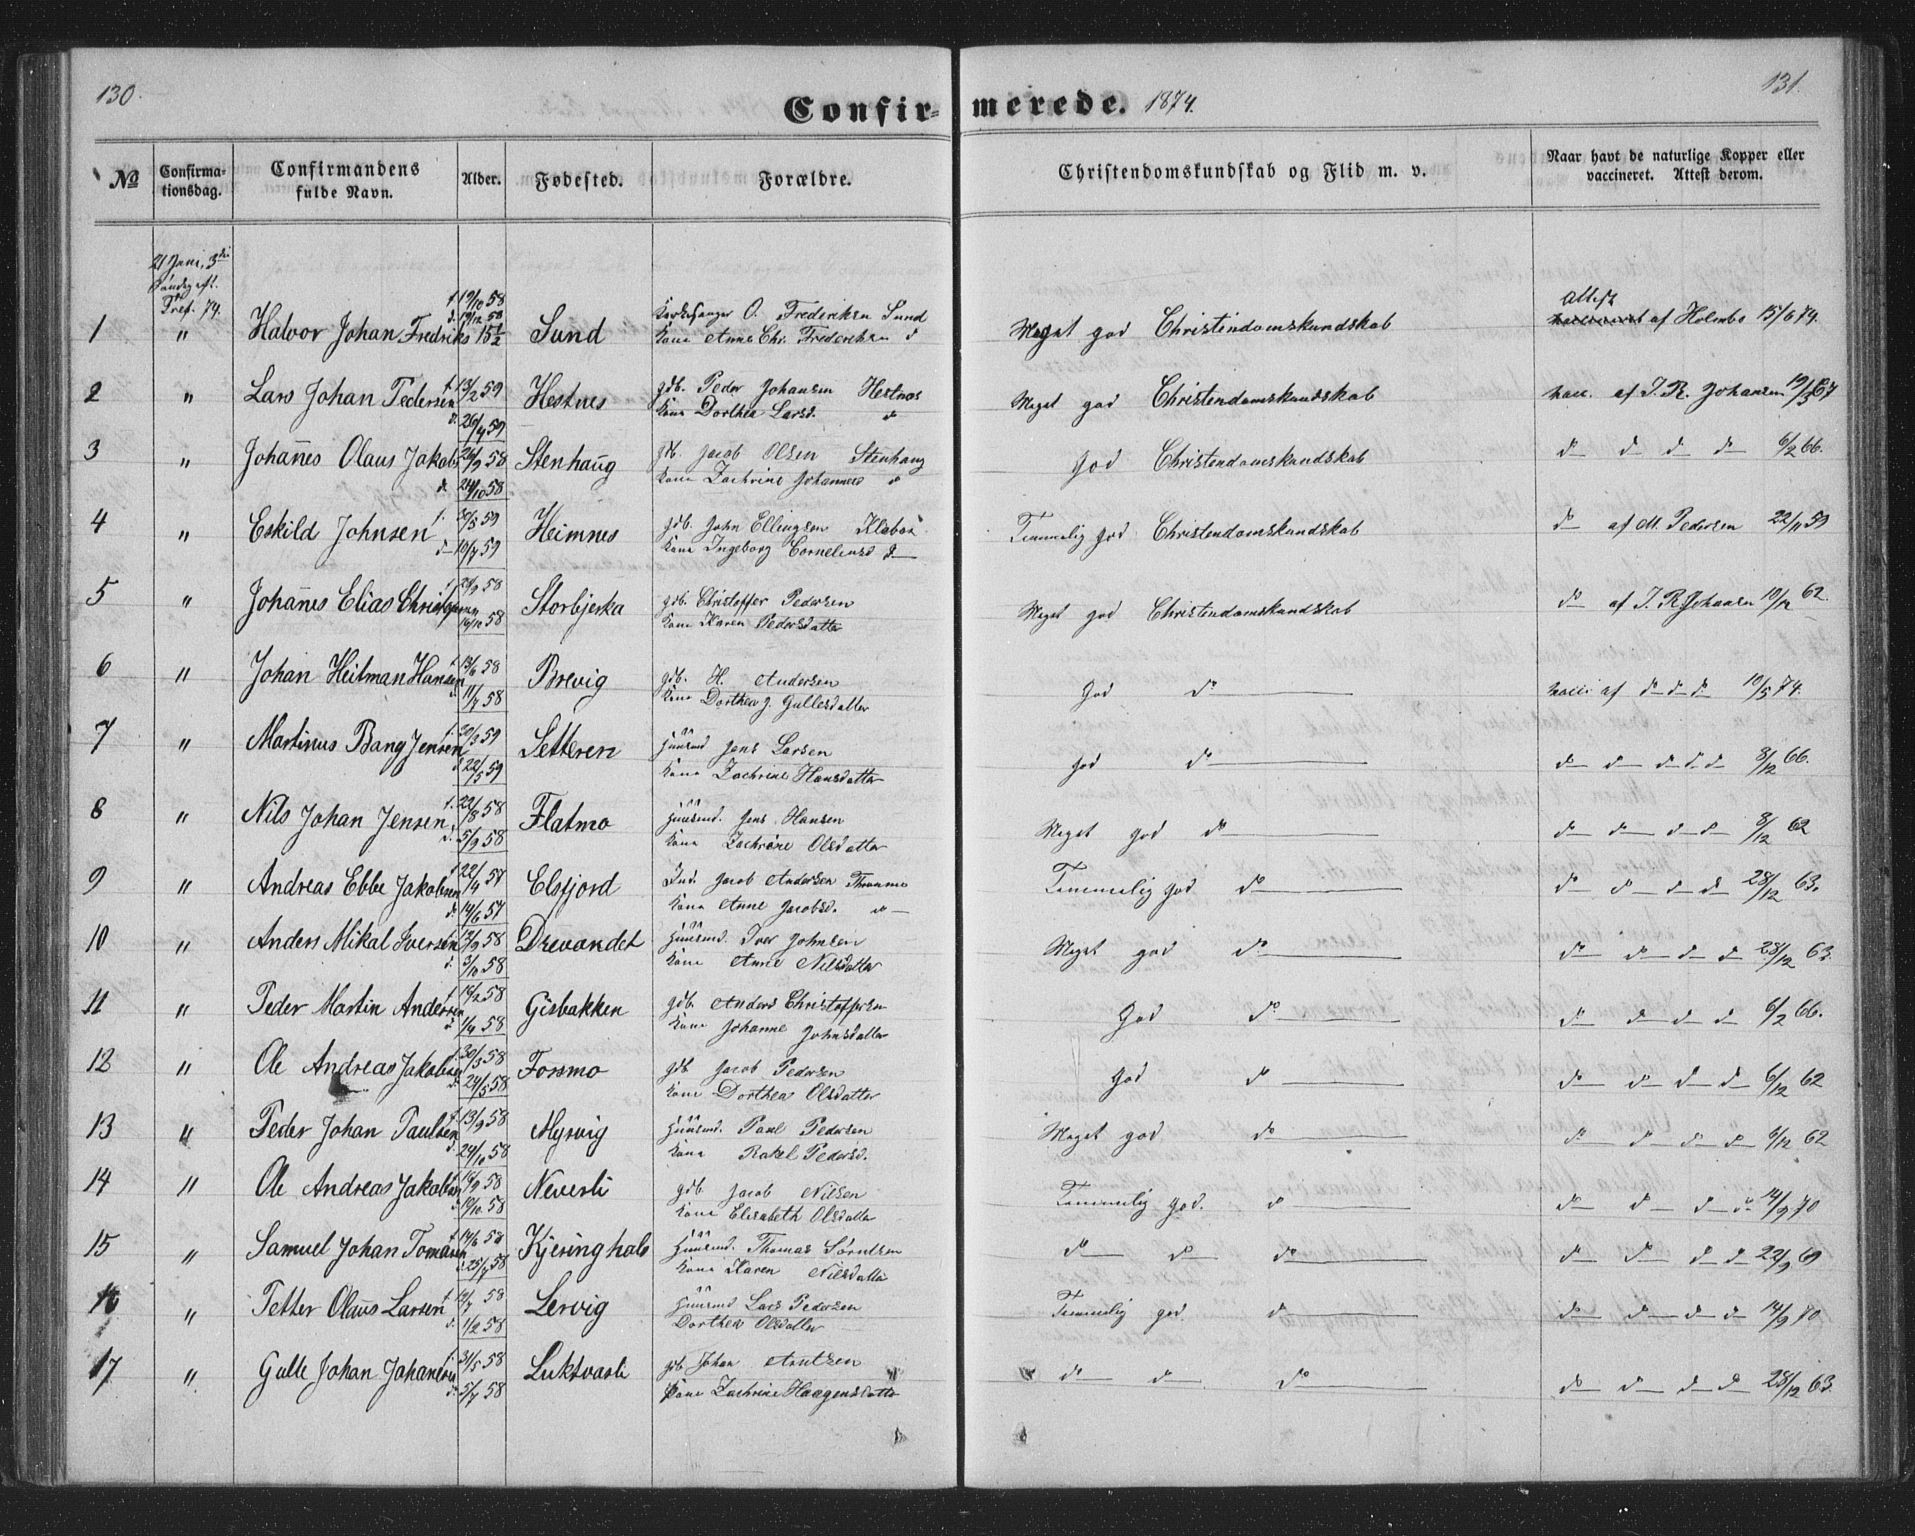 130.
131.
Confirmerede. 1874.
No
Confirmationsdag.
Confirmandens fulde Navn.
Alder.
Fødested.
Forældre.
Christendomskundskab og Flid m. v.
Naar havt de naturlige Kopper eller vaccineret. Attest derom.
21 Juni, 3die
Søndag eft.
Tref. 74.
1 " Halvor Johan Fredriks f. 19/10 58 d. 19/12 58 15½ Sund
Kirkesanger O. Frederiksen Sund
Kone Anne Chr. Frederiksen d
Meget god Christendomskundskab
Attest af Holmbo 15/6 74.
2 " Lars Johan Pedersen f. 13/2 59 d. 26/4 59 Hestnes
gdb. Peder Johansen Hestnes
Kone Dorthea Larsd. d
Meget god Christendomskundskab
vacc. af J. R. Johansen 19/5 67
3 " Johañes Olaus Jakobs 26/9 58 d. 24/10 58 Stenhaug
gdb. Jacob Olsen Stenhaug
Kone Zachrine Johannesd d
God Christendomskundskab
do do do do 6/2 66.
4 " Eskild Johnsen f. 30/5 59 d. 10/7 59 Heimnes
gdb. John Ellingsen Klabøe
Kone Ingeborg Corneliusd d
Temmelig god Christendomskundskab
do af M. Pedersen 22/11 59
5 " Johañes Elias f. 29/9 58 16/10 58 Storbjerka
gdb. Christoffer Pedersen
Kone Karen Pedersdatter
Meget god Christendomskundskab
do af J. R. Johansen 10/12 62.
6 " Johan Heitman Hansen f. 13/6 58 d. 11/7 58 Brevig
gdb. H. Andersen
Kone Dorthea J. Gullesdatter
God do
vacci af do do do 10/5 74.
7 " Martinus Bang Jensen f. 20/3 59 d. 22/5 59 Setteren
Huusmd Jens Larsen
Kone Zachrine Hansdatter
God do
do do do do do 8/12 66.
8 " Nils Johan Jensen f. 22/8 58 d. 5/9 58 Flatmo
Huusmd. Jens Hansen
Kone Zachrine Olsdatter
Meget god do
do do do do 8/12 62
9 " Andreas Ebbe Jakobsen f. 22/4 57 d. 14/6 57 Elsfjord
Ind. Jacob Andersen
Kone Anne Jacobsd. do
Temmelig god do
do do do do 28/12 63.
10 " Anders Mikal Iversen 12/9 58 d. 3/10 58 Drevandet
Huusmd. Iver Johnsen
Kone Anne Nilsdatter
Meget god do
do do do do 28/12 63.
11 " Peder Martin Andersen 14/2 58 d. 1/4 58 Gisbakken
gdb. Anders Christoffersen
Kone Johanne Johnsdatter
God do
do do do do 6/2 66.
12 " Ole Andreas Jakobsen f. 30/3 58 d. 24/5 58 Forsmo
gdb Jacob Pedersen
Kone Dorthea Olsdatter
God do
do do do do 6/12 62
13 " Peder Johan Paulsen f. 13/9 58 d. 24/10 58 Mysvig
Huusmd. Paul Pedersen
Kone Rakel Pedersd.
Meget god do
do do do do 6/12 62
14 " Ole Andreas Jakobsen 14/9 58 d. 19/10 58 Neverli
gdb. Jacob Nilsen
Kone Elisabeth Olsdatter
Temmelig god. do
do do do do 14/9 70
15 " Samuel Johan Tomasen f. 14/6 58 d. 25/7 58 Kjeringhals
Huusmd. Thomas
Kone Karen Nilsdatter
do do do
do do do do 22/9 69
16 " Petter Olaus Larsen f. 58 d. 1/2 58 Lervig
Huusmd Lars Pedersen
Dorthea Olsdatter
Temmelig god do
do do do do 14/9 70
17 " Gulle Johan Johansen f. 31/5 58 d. 5/7 58 Luktvasli
gdb. Johan Arntzen
Kone Zachrine Haagensdatter
do do do
do do do do 28/12 63.